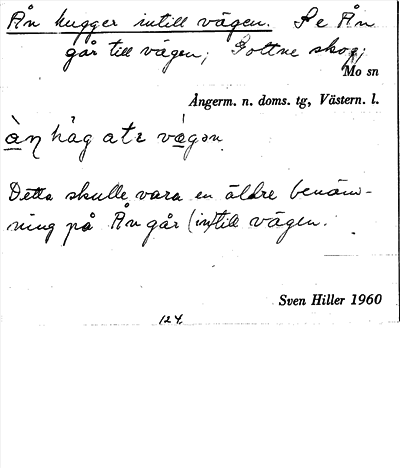 Ån hugger intill vägen. Se Ån
går till vägen; Gottne skog;
Mo sn
Ångerm. n. doms. tg, Västern. l.
Detta skulle vara en äldre benäm-
ning på Ån går (in)till vägen.
Sven Hiller 1960
124.